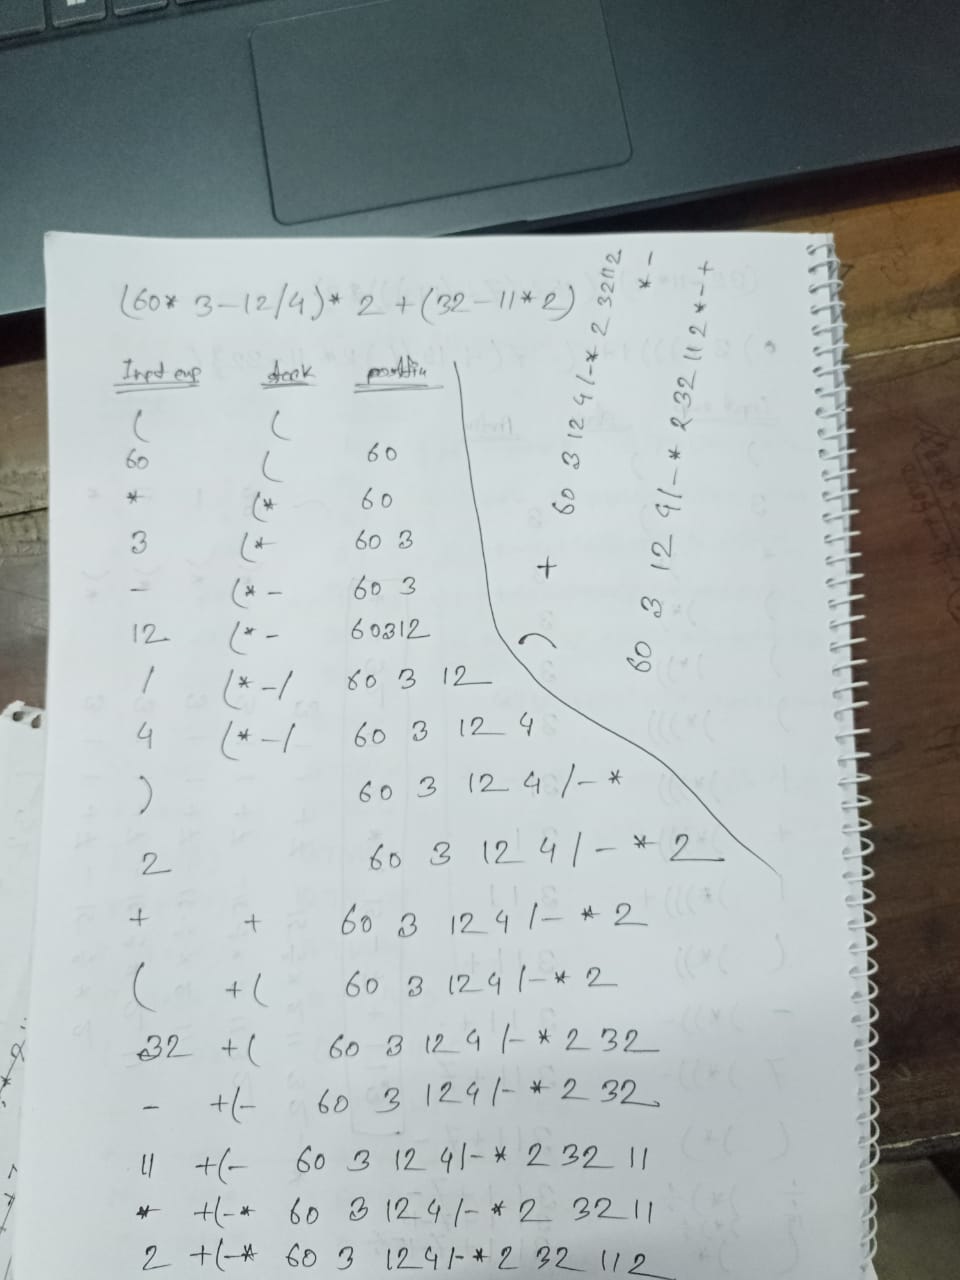 (60* 3-12/4)* 2 +(32-11*2)
Input exp stack postfix
( (
60 ( 60
* (* 60
3 (* 60 3
- (* - 60 3
12 (* - 60312
/ (* -/ 60 3 12
4 (* -/ 60 3 12 4
) 60 3 12 4/-*
2 60 3 12 4/-*2
+ + 60 3 12 4/-*2
( +( 60 3 12 4/-*2
32 +( 60 3 12 4/-*2 32
- +(- 60 3 12 4/-*2 32
11 +(- 60 3 12 4/-*2 32 11
* +(-* 60 3 12 4/-*2 32 11
2 +(-* 60 3 12 4/-*2 32 11 2
) + 60 3 12 4/-*2 32112
*-
60 3 12 4/-*2 32 11 2*-+